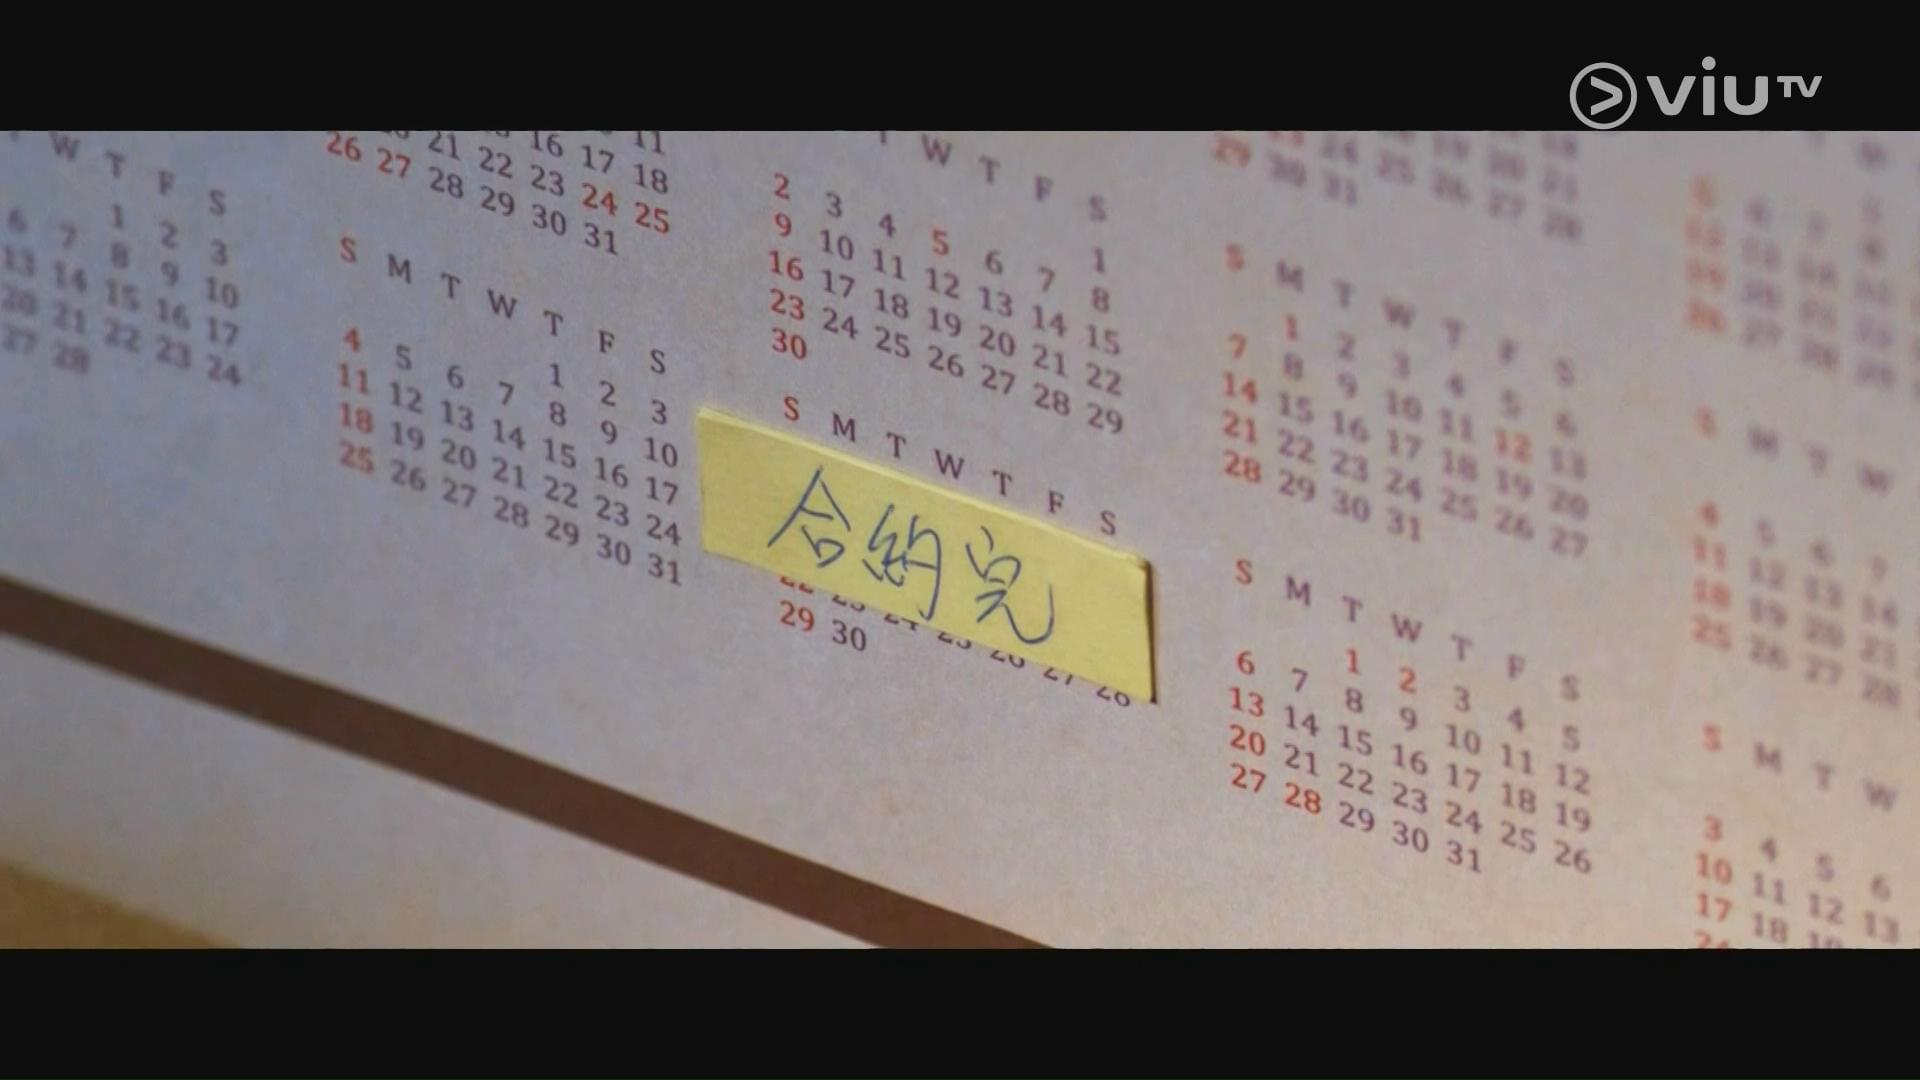 viu TV
W T F S
1 2 3
6 7 8 9 10
13 14 15 16 17
20 21 22 23 24
27 28
11
16 17 18
21 22 23 24 25
26 27 28 29 30 31
S M T W T F S
1 2 3
4 5 6 7 8 9 10
11 12 13 14 15 16 17
18 19 20 21 22 23 24
25 26 27 28 29 30 31
W T F S
1
2 3 4 5 6 7 8
9 10 11 12 13 14 15
16 17 18 19 20 21 22
23 24 25 26 27 28 29
30
S M T W T F S
合約完
29 30
29 30 31
S M T W T F S
1 2 3 4 5 6
7 8 9 10 11 12 13
14 15 16 17 18 19 20
21 22 23 24 25 26 27
28 29 30 31
S M T W T F S
1 2 3 4 5
6 7 8 9 10 11 12
13 14 15 16 17 18 19
20 21 22 23 24 25 26
27 28 29 30 31
S M T W
4 5 6 7
11 12 13 14
18 19 20 21
25 26 27 28
S M T W
3 4 5 6
10 11 12 13
17 18